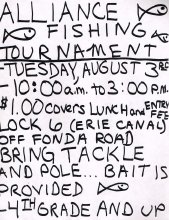 ALLIANCE
FISHING
TOURNAMENT
-TUESDAY, AUGUST 3RD
-10:00 a.m. to 3:00 P.M.
$1.00 covers Lunch and ENTRY FEE
LOCK 6 (ERIE CANAL)
OFF FONDA ROAD
BRING TACKLE
AND POLE... BAIT IS
PROVIDED
-4TH GRADE AND UP